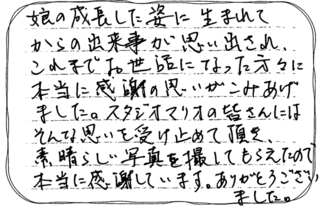 娘の成長した姿に生まれて
からの出来事が思い出され、
これまでお世話になった方々に
本当に感謝の思いがこみあげ
ました。スタジオマリオの皆さんには
そんな思いを受け止めて頂き、
素晴らしい写真を撮してもらえたので
本当に感謝しています。ありがとうござい
ました。